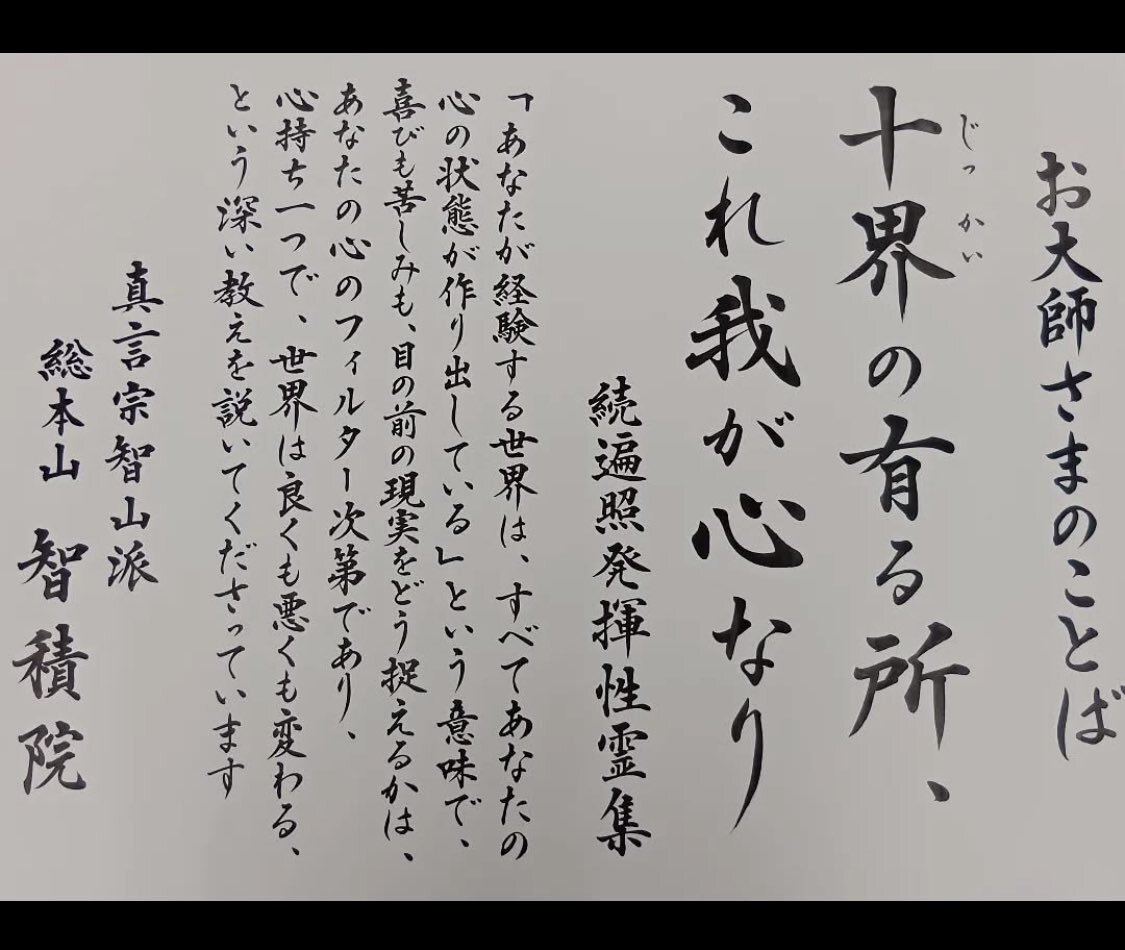 お大師さまのことば
十界の有る所、
じっかい
これ我が心なり
続遍照発揮性霊集
「あなたが経験する世界は、すべてあなたの
心の状態が作り出している」という意味で、
喜びも苦しみも、目の前の現実をどう捉えるかは、
あなたの心のフィルター次第であり、
心持ち一つで、世界は良くも悪くも変わる、
という深い教えを説いてくださっています
真言宗智山派
総本山 智積院